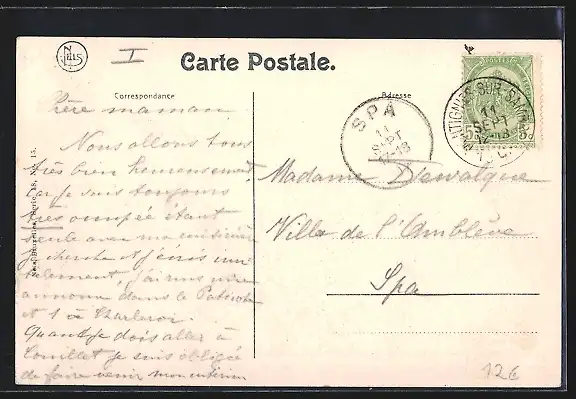 Nels
I
Carte Postale.
Correspondance
Adresse
POSTES
5 5
MONTIGNIES-SUR-SAMBRE
SEPT
SPA
11
SEPT
13
Chère maman
Nous allons tous
très bien heureusement
car je suis toujours
très occupée étant
seule avec ma cuisinière
je cherche et j'écris
j'ai mis une
annonce dans le
et à Charleroi.
Quand je dois aller à
Couillet je suis obligée
de faire venir mon
Madame Dewalque
Villa de l'Amblève
Spa
Nels, Bruxelles, Série 18, No 15.
12€